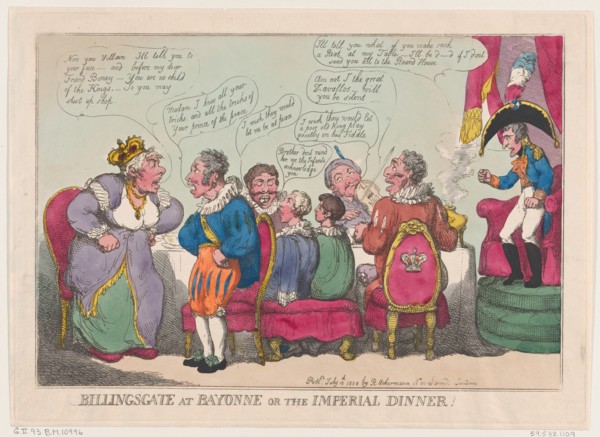 Now you Villain I'll tell you to
your face — and before my dear
Friend Boney — You are no child
of the Kings — So you may
shut up shop
Madam I know all your
tricks and all the tricks of
Your prince of the peace
I wish they would
let me be at peace
Brother dont mind
him we the Infants
acknowledge
you
I wish they would let
a poor old King play
quietly on his Fiddle
Am not I the great
Zavallos — will
you be silent
I'll tell you what if you make such
a Riot at my Table — I'll be d—d if I dont
send you all to the Round House
Publd July 10 1808 by R. Ackermann Strand London
BILLINGSGATE AT BAYONNE OR THE IMPERIAL DINNER!
G.II.93 B.M.10996
59.533.1109